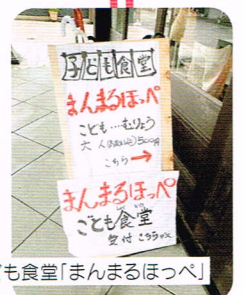 子ども食堂
まんまるほっぺ
こども…むりょう
500円
こちら→
まんまるほっぺ
こども食堂
受付 こちら
も食堂「まんまるほっぺ」